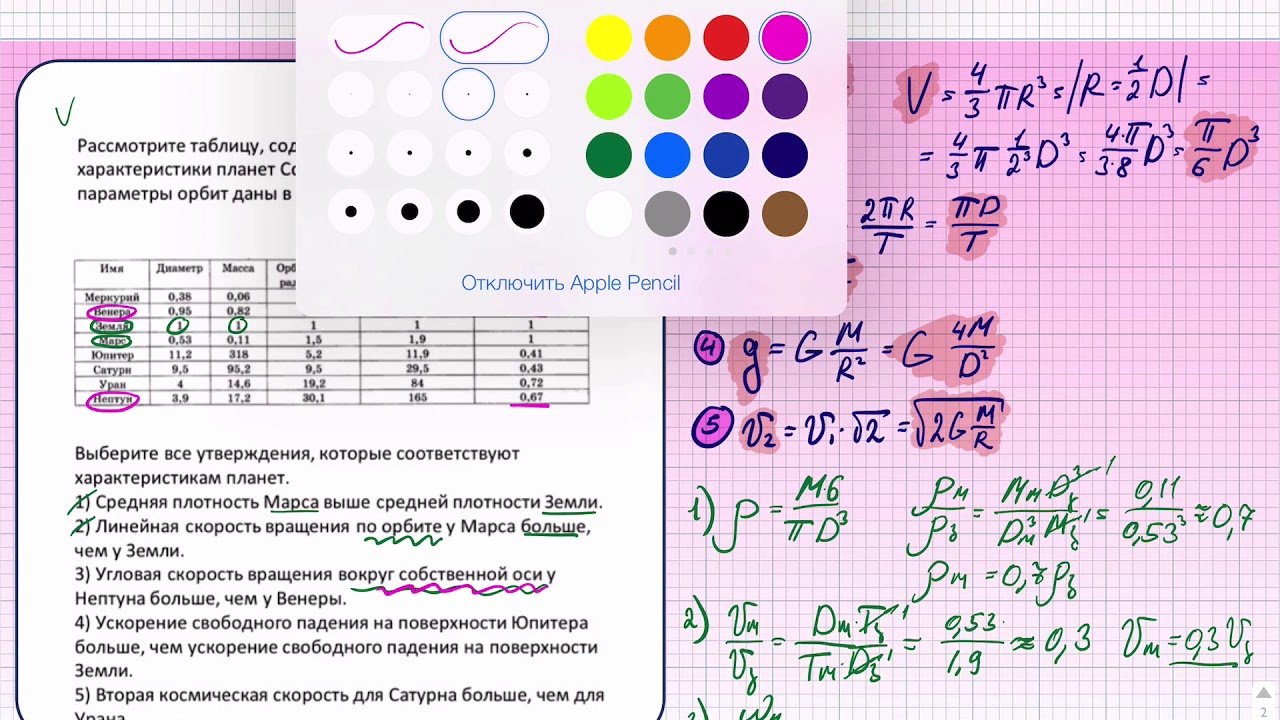 Отключить Apple Pencil
V
Рассмотрите таблицу, сод
характеристики планет Со
параметры орбит даны в
Имя Диаметр Масса Орб
рад
Меркурий 0,38 0,06
Венера 0,95 0,82
Земля 1 1 1 1 1
Марс 0,53 0,11 1,5 1,9 1
Юпитер 11,2 318 5,2 11,9 0,41
Сатурн 9,5 95,2 9,5 29,5 0,43
Уран 4 14,6 19,2 84 0,72
Нептун 3,9 17,2 30,1 165 0,67
Выберите все утверждения, которые соответствуют
характеристикам планет.
1) Средняя плотность Марса выше средней плотности Земли.
2) Линейная скорость вращения по орбите у Марса больше,
чем у Земли.
3) Угловая скорость вращения вокруг собственной оси у
Нептуна больше, чем у Венеры.
4) Ускорение свободного падения на поверхности Юпитера
больше, чем ускорение свободного падения на поверхности
Земли.
5) Вторая космическая скорость для Сатурна больше, чем для
Урана
V = 4/3 πR³ = |R = 1/2 D| =
= 4/3 π 1/2³ D³ = 4·π/3·8 D³ = π/6 D³
2πR/T = πD/T
4 g = G M/R² = G 4M/D²
5 v₂ = v₁·√2 = √2G M/R
1) ρ = M6/πD³ ρм/ρз = Mм Dз³/Dм³ Mз = 0,11/0,53³ ≈ 0,7
ρм = 0,7ρз
2) Vм/Vз = Dм·Tз/Tм·Dз = 0,53/1,9 ≈ 0,3 Vм = 0,3Vз
2